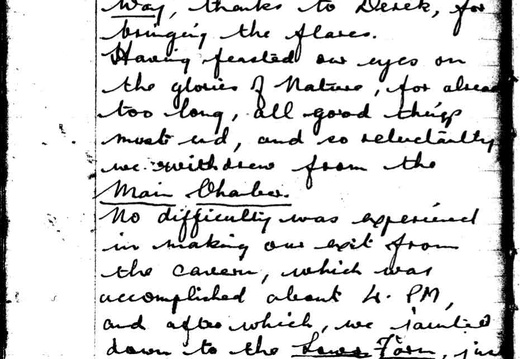 Way, thanks to Derek, for
bringing the flares.
Having feasted our eyes on
the glories of Nature, for alrea
too long, all good things
must end, and so reluctantly
we withdrew from the
Main Chamber.
No difficulty was experienced
in making our exit from
the cavern, which was
accomplished about 4. PM,
and after which, we jaunted
down to the Lower Farm, jus